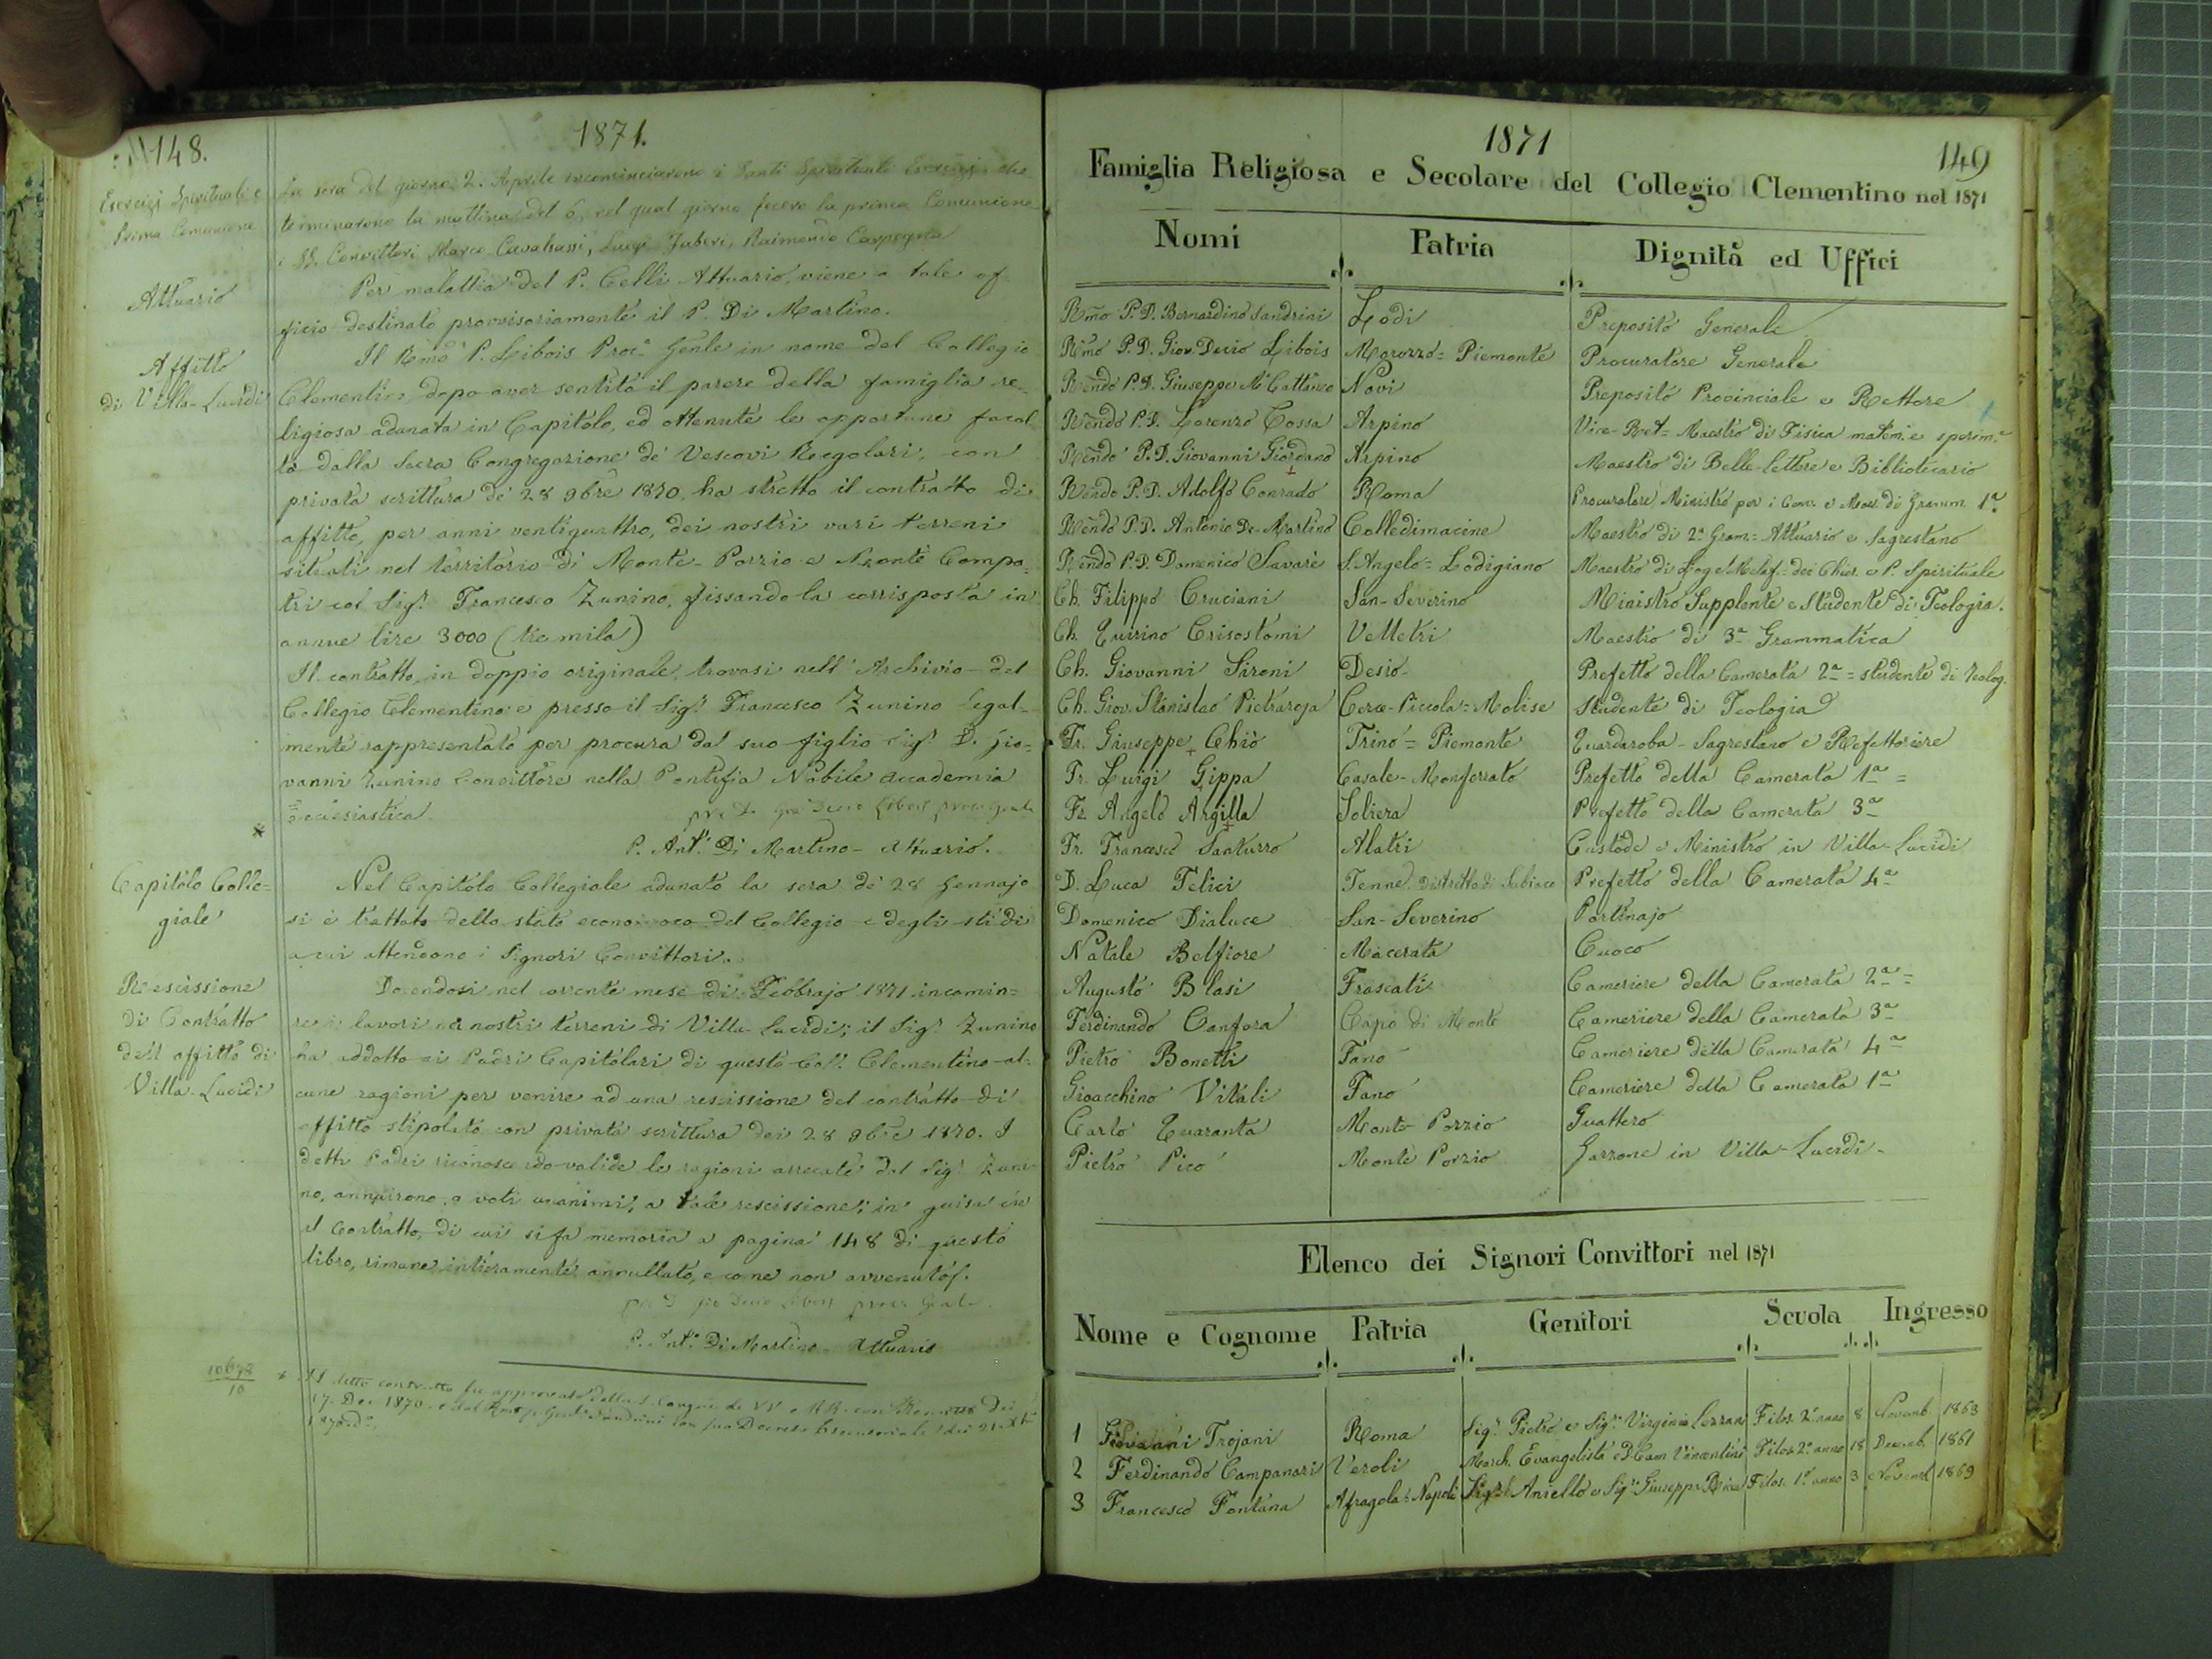 148.
1871.
Esercizi Spirituali e
Prima Comunione
La sera del giorno 2. Aprile incominciarono i Santi Spirituali Esercizj che
terminarono la mattina del 6, nel qual giorno fecero la prima Comunione
i SS. Convittori Marco Cavaltassi, Luigi Juberi, Raimondo Carpegna
Attuario
Per malattia del P. Celli Attuario, viene a tale of-
ficio destinato provvisoriamente il P. Di Martino.
Affitto
di Villa-Lucidi
Il Rmo P. Libois Proc.e Gen̄le in nome del Collegio
Clementino, dopo aver sentito il parere della famiglia re-
ligiosa adunata in Capitolo, ed ottenute le opportune facol
tà dalla Sacra Congregazione de' Vescovi Regolari, con
privata scrittura de' 28 9bre 1870, ha stretto il contratto di
affitto, per anni ventiquattro, dei nostri vari terreni
situati nel territorio di Monte-Porzio e Monte Compa-
tri col Sigr. Francesco Zunino, fissando la corrisposta in
annue lire 3000 (tre mila)
Il contratto in doppio originale, trovasi nell'Archivio del
Collegio Clementino e presso il Sigr. Francesco Zunino legal-
mente rappresentato per procura dal suo figlio Sigr. D. Gio-
vanni Zunino Convittore nella Pontifia Nobile Accademia
Ecclesiastica.
Libois proc. Genle
*
P. Ant.o Di Martino - Attuario.
Capitolo Colle=
giale
Nel Capitolo Collegiale adunato la sera de' 28 Gennajo
si è trattato dello stato economico del Collegio e degli studi
a cui attendono i Signori Convittori.
Rescissione
di Contratto
dell affitto di
Villa-Lucidi
Dovendosi nel corrente mese di Febbrajo 1871 incomin=
re i lavori ne' nostri terreni di Villa-Lucidi; il Sigr. Zunino
ha addotto ai Padri Capitolari di questo Coll. Clementino al-
cune ragioni per venire ad una rescissione del contratto di
affitto stipolato con privata scrittura dei 28 9bre 1870. I
detti Padri riconoscendo valide le ragioni arrecate dal Sigr. Zuni
no, annuirono, a voti unanimi, a tale rescissione; in guisa che
il Contratto, di cui si fa memoria a pagina 148 di questo
libro, rimane intieramente annullato, e come non avvenuto.
Libois proc. Genle
P. Ant.o Di Martino - Attuario
10672
10
* Il detto contratto fu approvato dalla S. Congne de VV e RR. con Rescritto dei
17. Dec 1870
1871
149
Famiglia Religiosa e Secolare del Collegio Clementino nel 1871
Nomi Patria Dignità ed Uffici
Rmo P.D. Bernardino Sandrini Lodi Preposito Generale
Rmo P.D. Giov. Decio Libois Morozzo = Piemonte Procuratore Generale
Rendo P.D. Giuseppe M.a Cattaneo Novi Preposito Provinciale e Rettore
Rendo P.D. Lorenzo Cossa Arpino Vice-Ret= Maestro di Fisica matem. e sperim.e
Rendo P.D. Giovanni Giordano Arpino Maestro di Belle-lettere e Bibliotecario
Rendo P.D. Adolfo Conrado Roma Procuratore Ministro per i Conv. e Maes. di Gramm. 1a.
Rendo P.D. Antonio De-Martino Colledimacine Maestro di 2a Gram= Attuario e Sagrestano
Rendo P.D. Domenico Savarè S. Angelo = Lodigiano Maestro di Log. e Metaf. dei Chier. e P. Spirituale
Ch. Filippo Cruciani San-Severino Ministro Supplente e Studente di Teologia.
Ch. Quirino Crisostomi Velletri Maestro di 3a Grammatica
Ch. Giovanni Sironi Desio Prefetto della Camerata 2a = studente di Teolog.
Ch. Giov. Stanislao Pietraroja Cerce-Piccola = Molise Studente di Teologia
Fr. Giuseppe Chiò Trino = Piemonte Guardaroba - Sagrestano e Refettoriere
Fr. Luigi Gippa Casale-Monferrato Prefetto della Camerata 1a =
Fr. Angelo Argilla Soliera Prefetto della Camerata 3a
Fr. Francesco Santurro Alatri Custode e Ministro in Villa-Lucidi
D. Luca Felici Jenne Distretto di Subiaco Prefetto della Camerata 4a
Domenico Dialuce San-Severino Portinajo
Natale Belfiore Macerata Cuoco
Augusto Blasi Frascati Cameriere della Camerata 2a =
Ferdinando Canfora Capo di Monte Cameriere della Camerata 3a
Pietro Bonetti Fano Cameriere della Camerata 4a
Gioacchino Vitali Fano Cameriere della Camerata 1a
Carlo Quaranta Monte-Porzio Guattero
Pietro Pico Monte Porzio Garzone in Villa-Lucidi -
Elenco dei Signori Convittori nel 1871
Nome e Cognome Patria Genitori Scuola Ingresso
1 Giovanni Trojani Roma Sigr. Pietro e Sigra Virginia Filos. 2o anno 8 Novemb. 1863
2 Ferdinando Campanari Veroli March. Evangelista e D. Cam. Vincentini Filos. 2o anno 18 Decemb. 1861
3 Francesco Fontana Afragola = Napoli Sigr. Aniello e Sigra Giuseppa Filos. 1o anno 3 Novemb. 1869